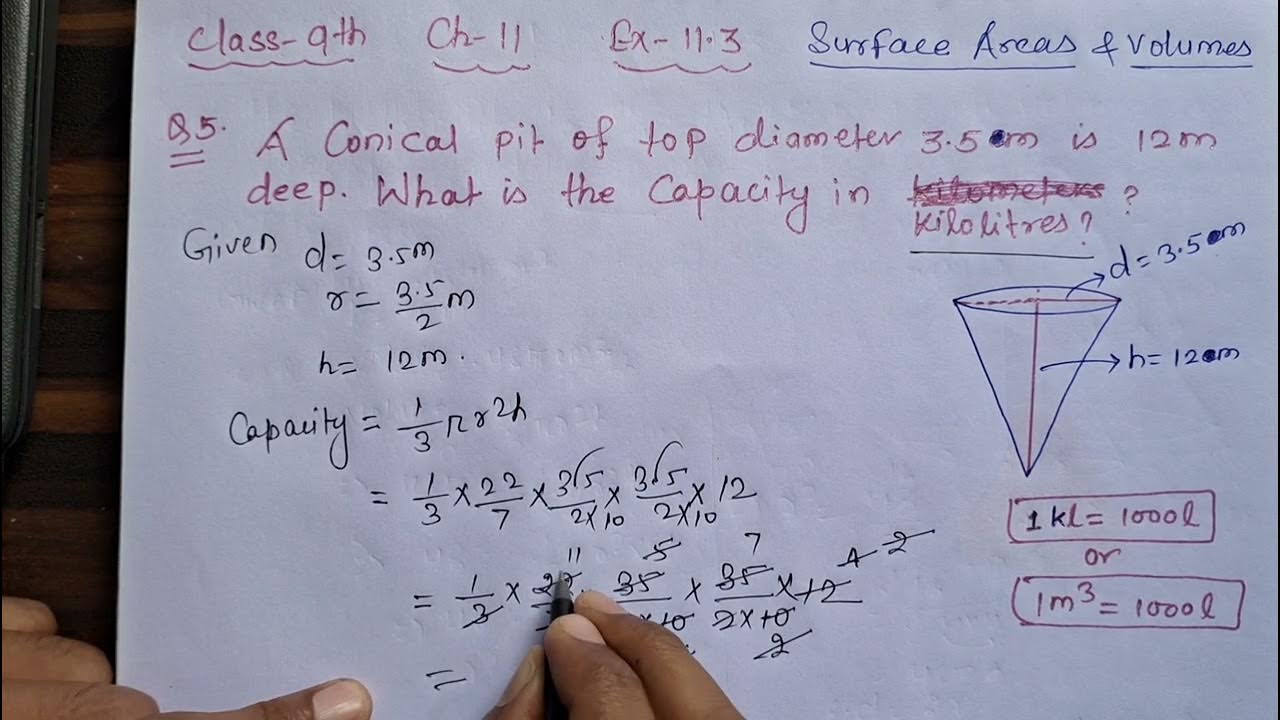 Class-9th Ch-11 Ex-11.3 Surface Areas & Volumes
Q5. A Conical pit of top diameter 3.5 m is 12m
deep. What is the Capacity in ?
kilolitres?
Given d= 3.5m
r= 3.5/2 m
h= 12m.
Capacity = 1/3 πr2h
= 1/3 × 22/7 × 35/2×10 × 35/2×10 × 12
11 5 7 4 2
= 1/3 × 35 × 35/2×10 × 12
2
=
d=3.5 m
h=12 m
1kl=1000l
or
1m³=1000l